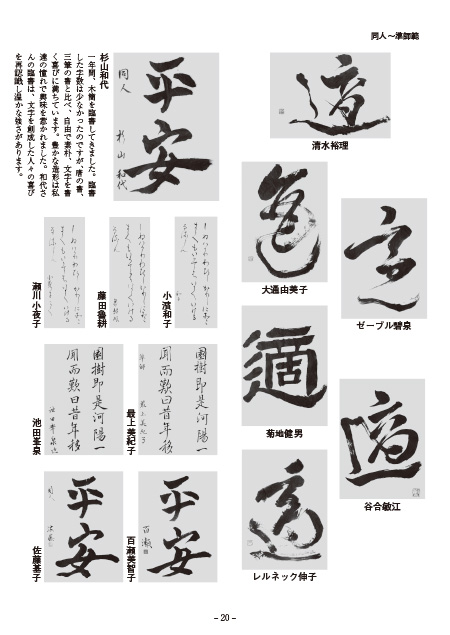 同人〜準師範
適
清水裕理
色
大通由美子
適
菊地健男
レルネック伸子
ゼーブル碧泉
適
谷合敏江
平安
同人
杉山和代
杉山和代
一年間、木簡を臨書してきました。臨書
した字数は少なかったのですが、唐の書、
三筆の書と比べ、自由で素朴、文字を書
く喜びに満ちています。豊かな造形は私
達の憧れで興味を惹かれました。和代さ
んの臨書は、文字を創成した人々の喜び
を再認識し温かな強さがあります。
小濱和子
藤田魯耕
瀬川小夜子
園樹即是河陽一
聞而歎曰昔年移
最上美紀子
園樹即是河陽一
聞而歎曰昔年移
池田峯泉
平安
百瀬
百瀬美智子
平安
佐藤基子
– 20 –